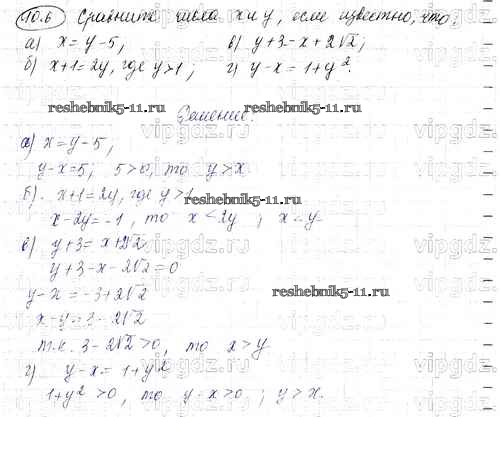 10.6 Сравните числа x и y, если известно, что:
а) x = y - 5, в) y + 3 - x + 2√2;
б) x + 1 = 2y, где y > 1; г) y - x = 1 + y².
reshebnik5-11.ru reshebnik5-11.ru
Решение:
а) x = y - 5,
y - x = 5; 5 > 0, то y > x
б). x + 1 = 2y, где y > 1
reshebnik5-11.ru
x - 2y = -1, то x < 2y; x < y.
в) y + 3 = x + 2√2
y + 3 - x - 2√2 = 0
y - x = -3 + 2√2
reshebnik5-11.ru
x - y = 3 - 2√2
т.к. 3 - 2√2 > 0, то x > y
г) y - x = 1 + y²
1 + y² > 0, то y - x > 0; y > x.
vipgdz.ru
vipgdz.ru
vipgdz.ru
vipgdz.ru
vipgdz.ru
vipgdz.ru
vipgdz.ru